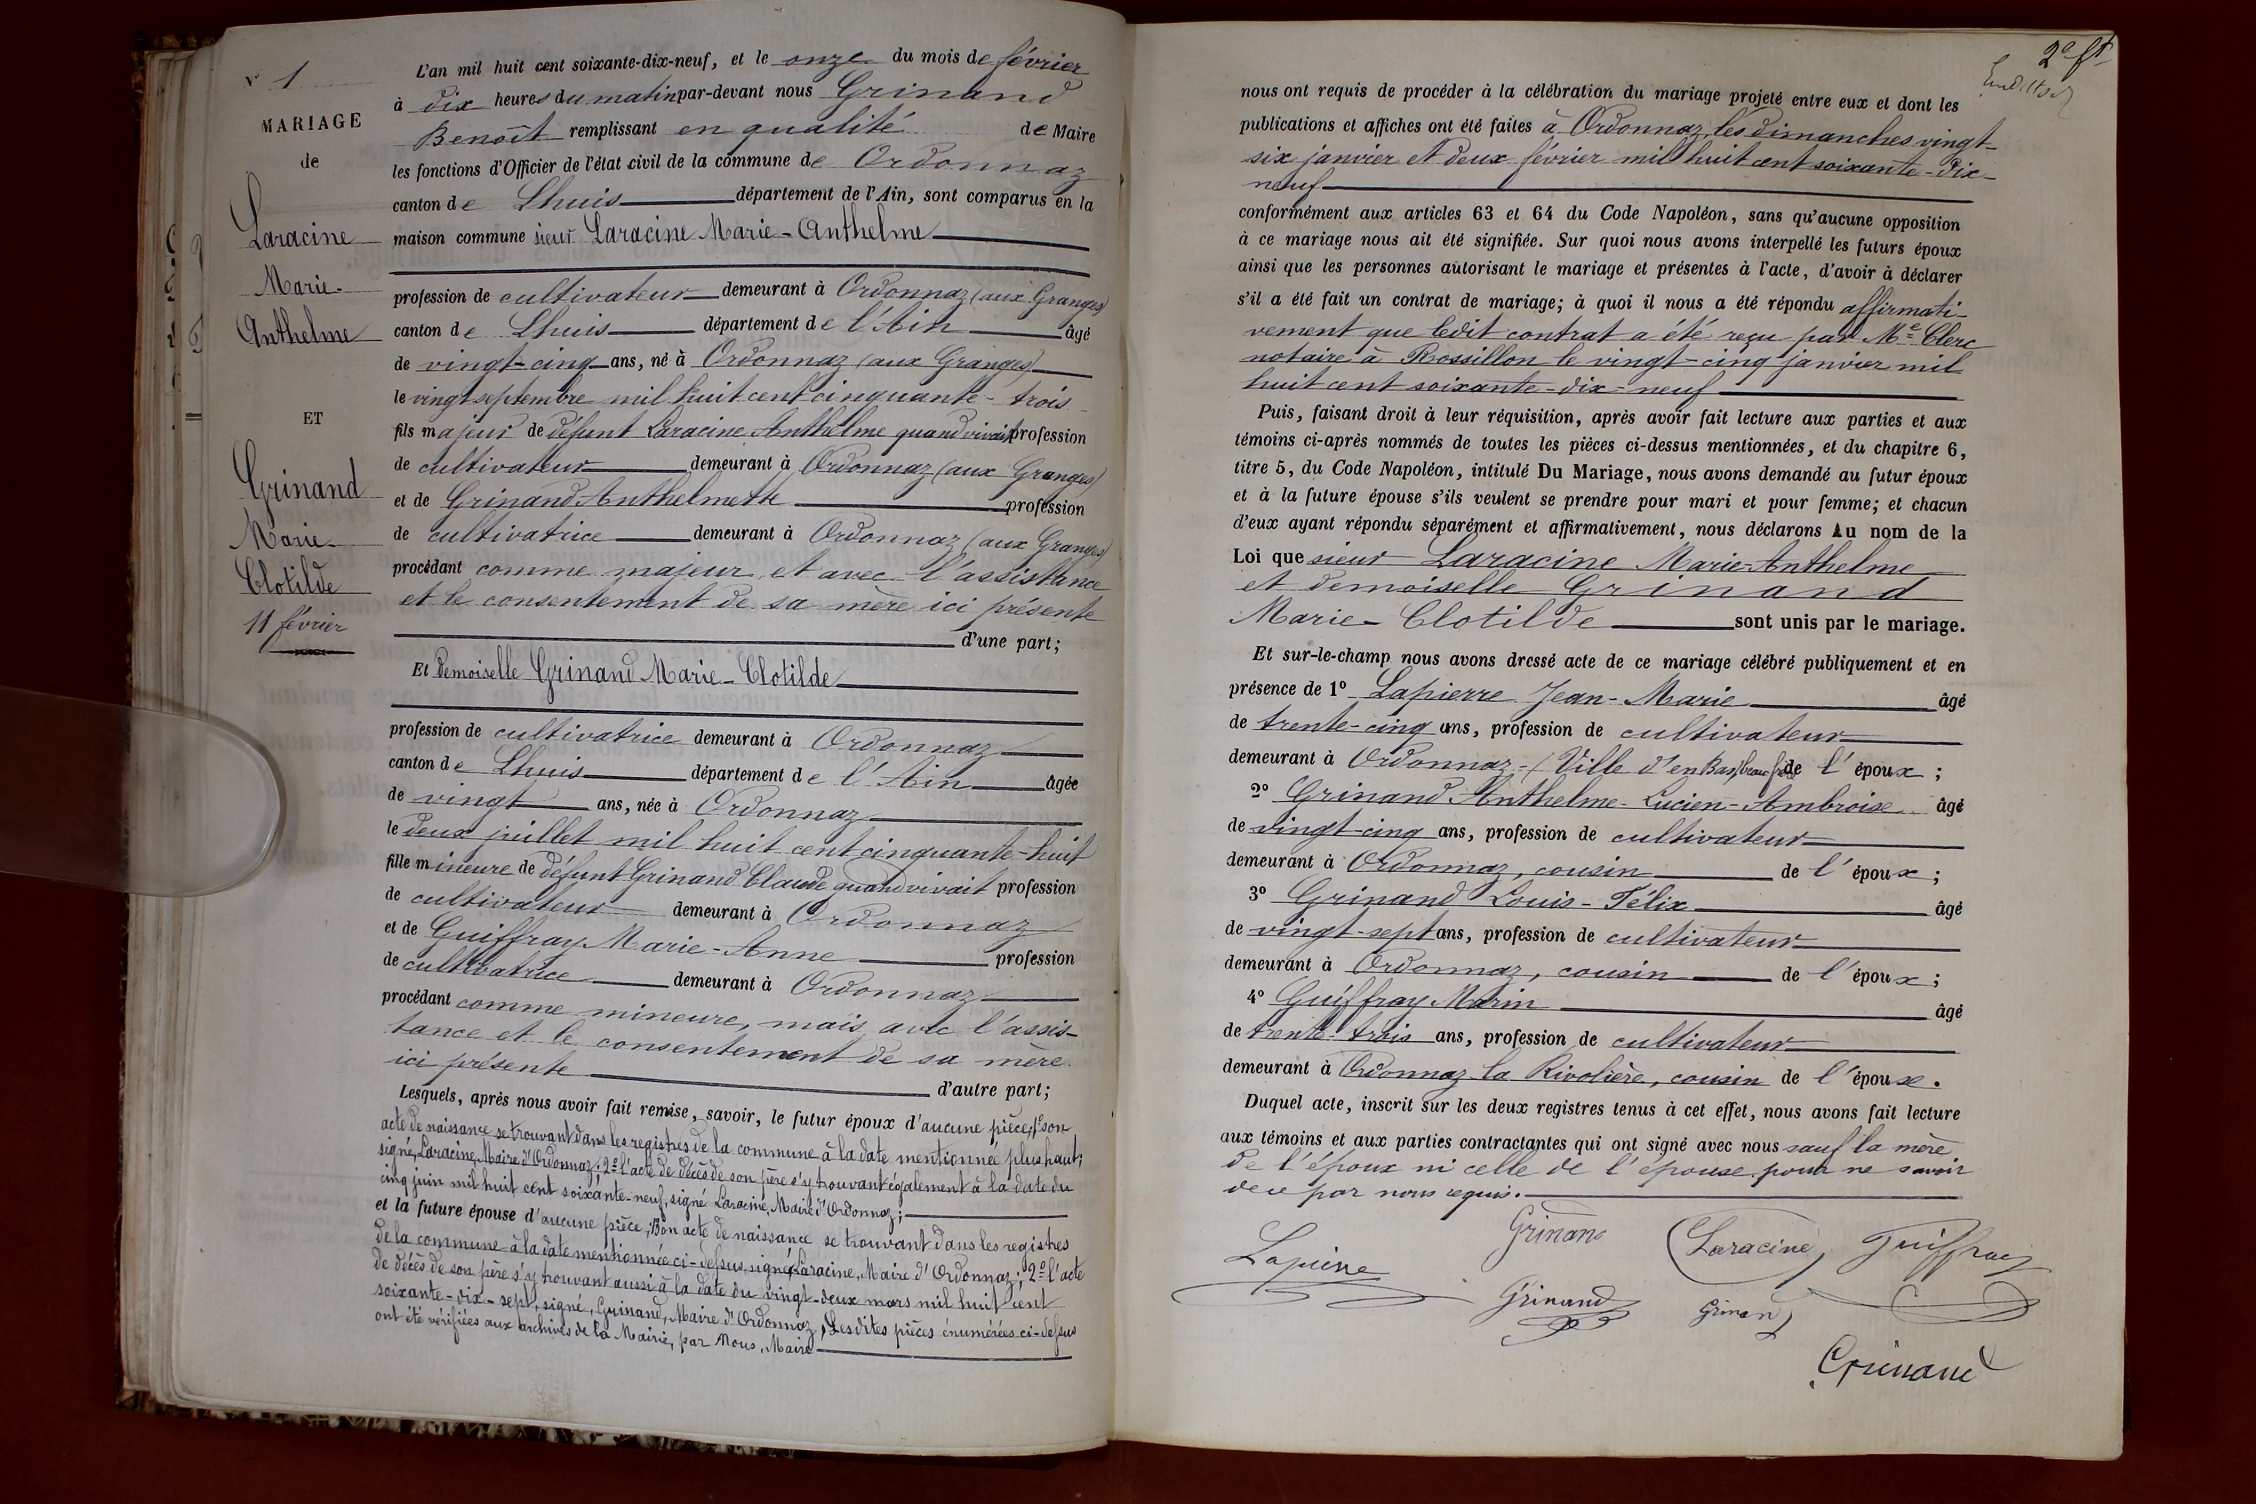 N° 1
MARIAGE
de
Laracine
Marie-
Anthelme
ET
Grinand
Marie-
Clotilde
11 février
L'an mil huit cent soixante-dix-neuf, et le onze du mois de février
à dix heures du matin par-devant nous Grinand
Benoît remplissant en qualité de Maire
les fonctions d'Officier de l'état civil de la commune de Ordonnaz
canton de Lhuis département de l'Ain, sont comparus en la
maison commune sieur Laracine Marie-Anthelme
profession de cultivateur demeurant à Ordonnaz (aux Granges)
canton de Lhuis département de l'Ain âgé
de vingt-cinq ans, né à Ordonnaz (aux Granges)
le vingt septembre mil huit cent cinquante-trois
fils majeur de défunt Laracine Anthelme quand vivait profession
de cultivateur demeurant à Ordonnaz (aux Granges)
et de Grinand Anthelmette profession
de cultivatrice demeurant à Ordonnaz (aux Granges)
procédant comme majeur et avec l'assistance
et le consentement de sa mère ici présente
d'une part;
Et Demoiselle Grinand Marie-Clotilde
profession de cultivatrice demeurant à Ordonnaz
canton de Lhuis département de l'Ain âgée
de vingt ans, née à Ordonnaz
le deux juillet mil huit cent cinquante-huit
fille mineure de défunt Grinand Claude quand vivait profession
de cultivateur demeurant à Ordonnaz
et de Guiffray Marie-Anne profession
de cultivatrice demeurant à Ordonnaz
procédant comme mineure, mais avec l'assis-
tance et le consentement de sa mère
ici présente d'autre part;
Lesquels, après nous avoir fait remise, savoir, le futur époux d'aucune pièce, 1° son
acte de naissance se trouvant dans les registres de la commune à la date mentionnée plus haut,
signé, Laracine, Maire d'Ordonnaz; 2° l'acte de décès de son père s'y trouvant également à la date du
cinq juin mil huit cent soixante-neuf, signé Laracine, Maire d'Ordonnaz;
et la future épouse d'aucune pièce, 1° son acte de naissance se trouvant dans les registres
de la commune à la date mentionnée ci-dessus, signé, Laracine, Maire d'Ordonnaz; 2° l'acte
de décès de son père s'y trouvant aussi à la date du vingt-deux mars mil huit cent
soixante-dix-sept, signé, Grinand, Maire d'Ordonnaz, Lesdites pièces énumérées ci-dessus
ont été vérifiées aux archives de la Mairie, par Nous, Maire
2e ft
nous ont requis de procéder à la célébration du mariage projeté entre eux et dont les
publications et affiches ont été faites à Ordonnaz, les dimanches vingt-
six janvier et deux février mil huit cent soixante-dix-
neuf
conformément aux articles 63 et 64 du Code Napoléon, sans qu'aucune opposition
à ce mariage nous ait été signifiée. Sur quoi nous avons interpellé les futurs époux
ainsi que les personnes autorisant le mariage et présentes à l'acte, d'avoir à déclarer
s'il a été fait un contrat de mariage; à quoi il nous a été répondu affirmati-
vement que ledit contrat a été reçu par Me Clerc
notaire à Rossillon le vingt-cinq janvier mil
huit cent soixante-dix-neuf
Puis, faisant droit à leur réquisition, après avoir fait lecture aux parties et aux
témoins ci-après nommés de toutes les pièces ci-dessus mentionnées, et du chapitre 6,
titre 5, du Code Napoléon, intitulé Du Mariage, nous avons demandé au futur époux
et à la future épouse s'ils veulent se prendre pour mari et pour femme; et chacun
d'eux ayant répondu séparément et affirmativement, nous déclarons Au nom de la
Loi que sieur Laracine Marie-Anthelme
et demoiselle Grinand
Marie-Clotilde sont unis par le mariage.
Et sur-le-champ nous avons dressé acte de ce mariage célébré publiquement et en
présence de 1° Lapierre Jean-Marie âgé
de trente-cinq ans, profession de cultivateur
demeurant à Ordonnaz-(Ville d'en Bas) beau frère de l'époux;
2° Grinand Anthelme-Lucien-Ambroise âgé
de vingt-cinq ans, profession de cultivateur
demeurant à Ordonnaz, cousin de l'époux;
3° Grinand Louis-Félix âgé
de vingt-sept ans, profession de cultivateur
demeurant à Ordonnaz, cousin de l'époux;
4° Guiffray Marin âgé
de trente-trois ans, profession de cultivateur
demeurant à Ordonnaz la Rivolière, cousin de l'épouse.
Duquel acte, inscrit sur les deux registres tenus à cet effet, nous avons fait lecture
aux témoins et aux parties contractantes qui ont signé avec nous sauf la mère
de l'époux ni celle de l'épouse pour ne savoir
de ce par nous requis.
Lapierre Grinand Laracine Guiffray
Grinand Grinand
Grinand